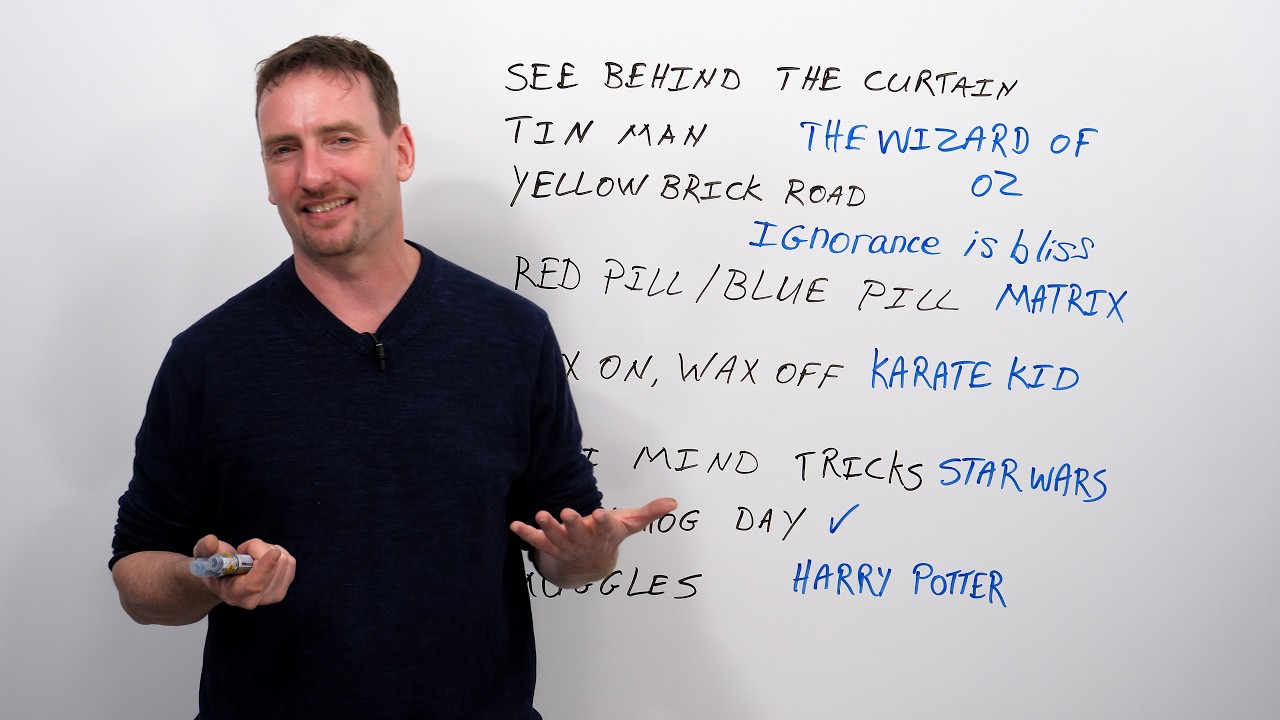 SEE BEHIND THE CURTAIN
TIN MAN THE WIZARD OF
YELLOW BRICK ROAD OZ
IGnorance is bliss
RED PILL/BLUE PILL MATRIX
ON, WAX OFF KARATE KID
MIND TRICKS STAR WARS
DAY ✓
HARRY POTTER